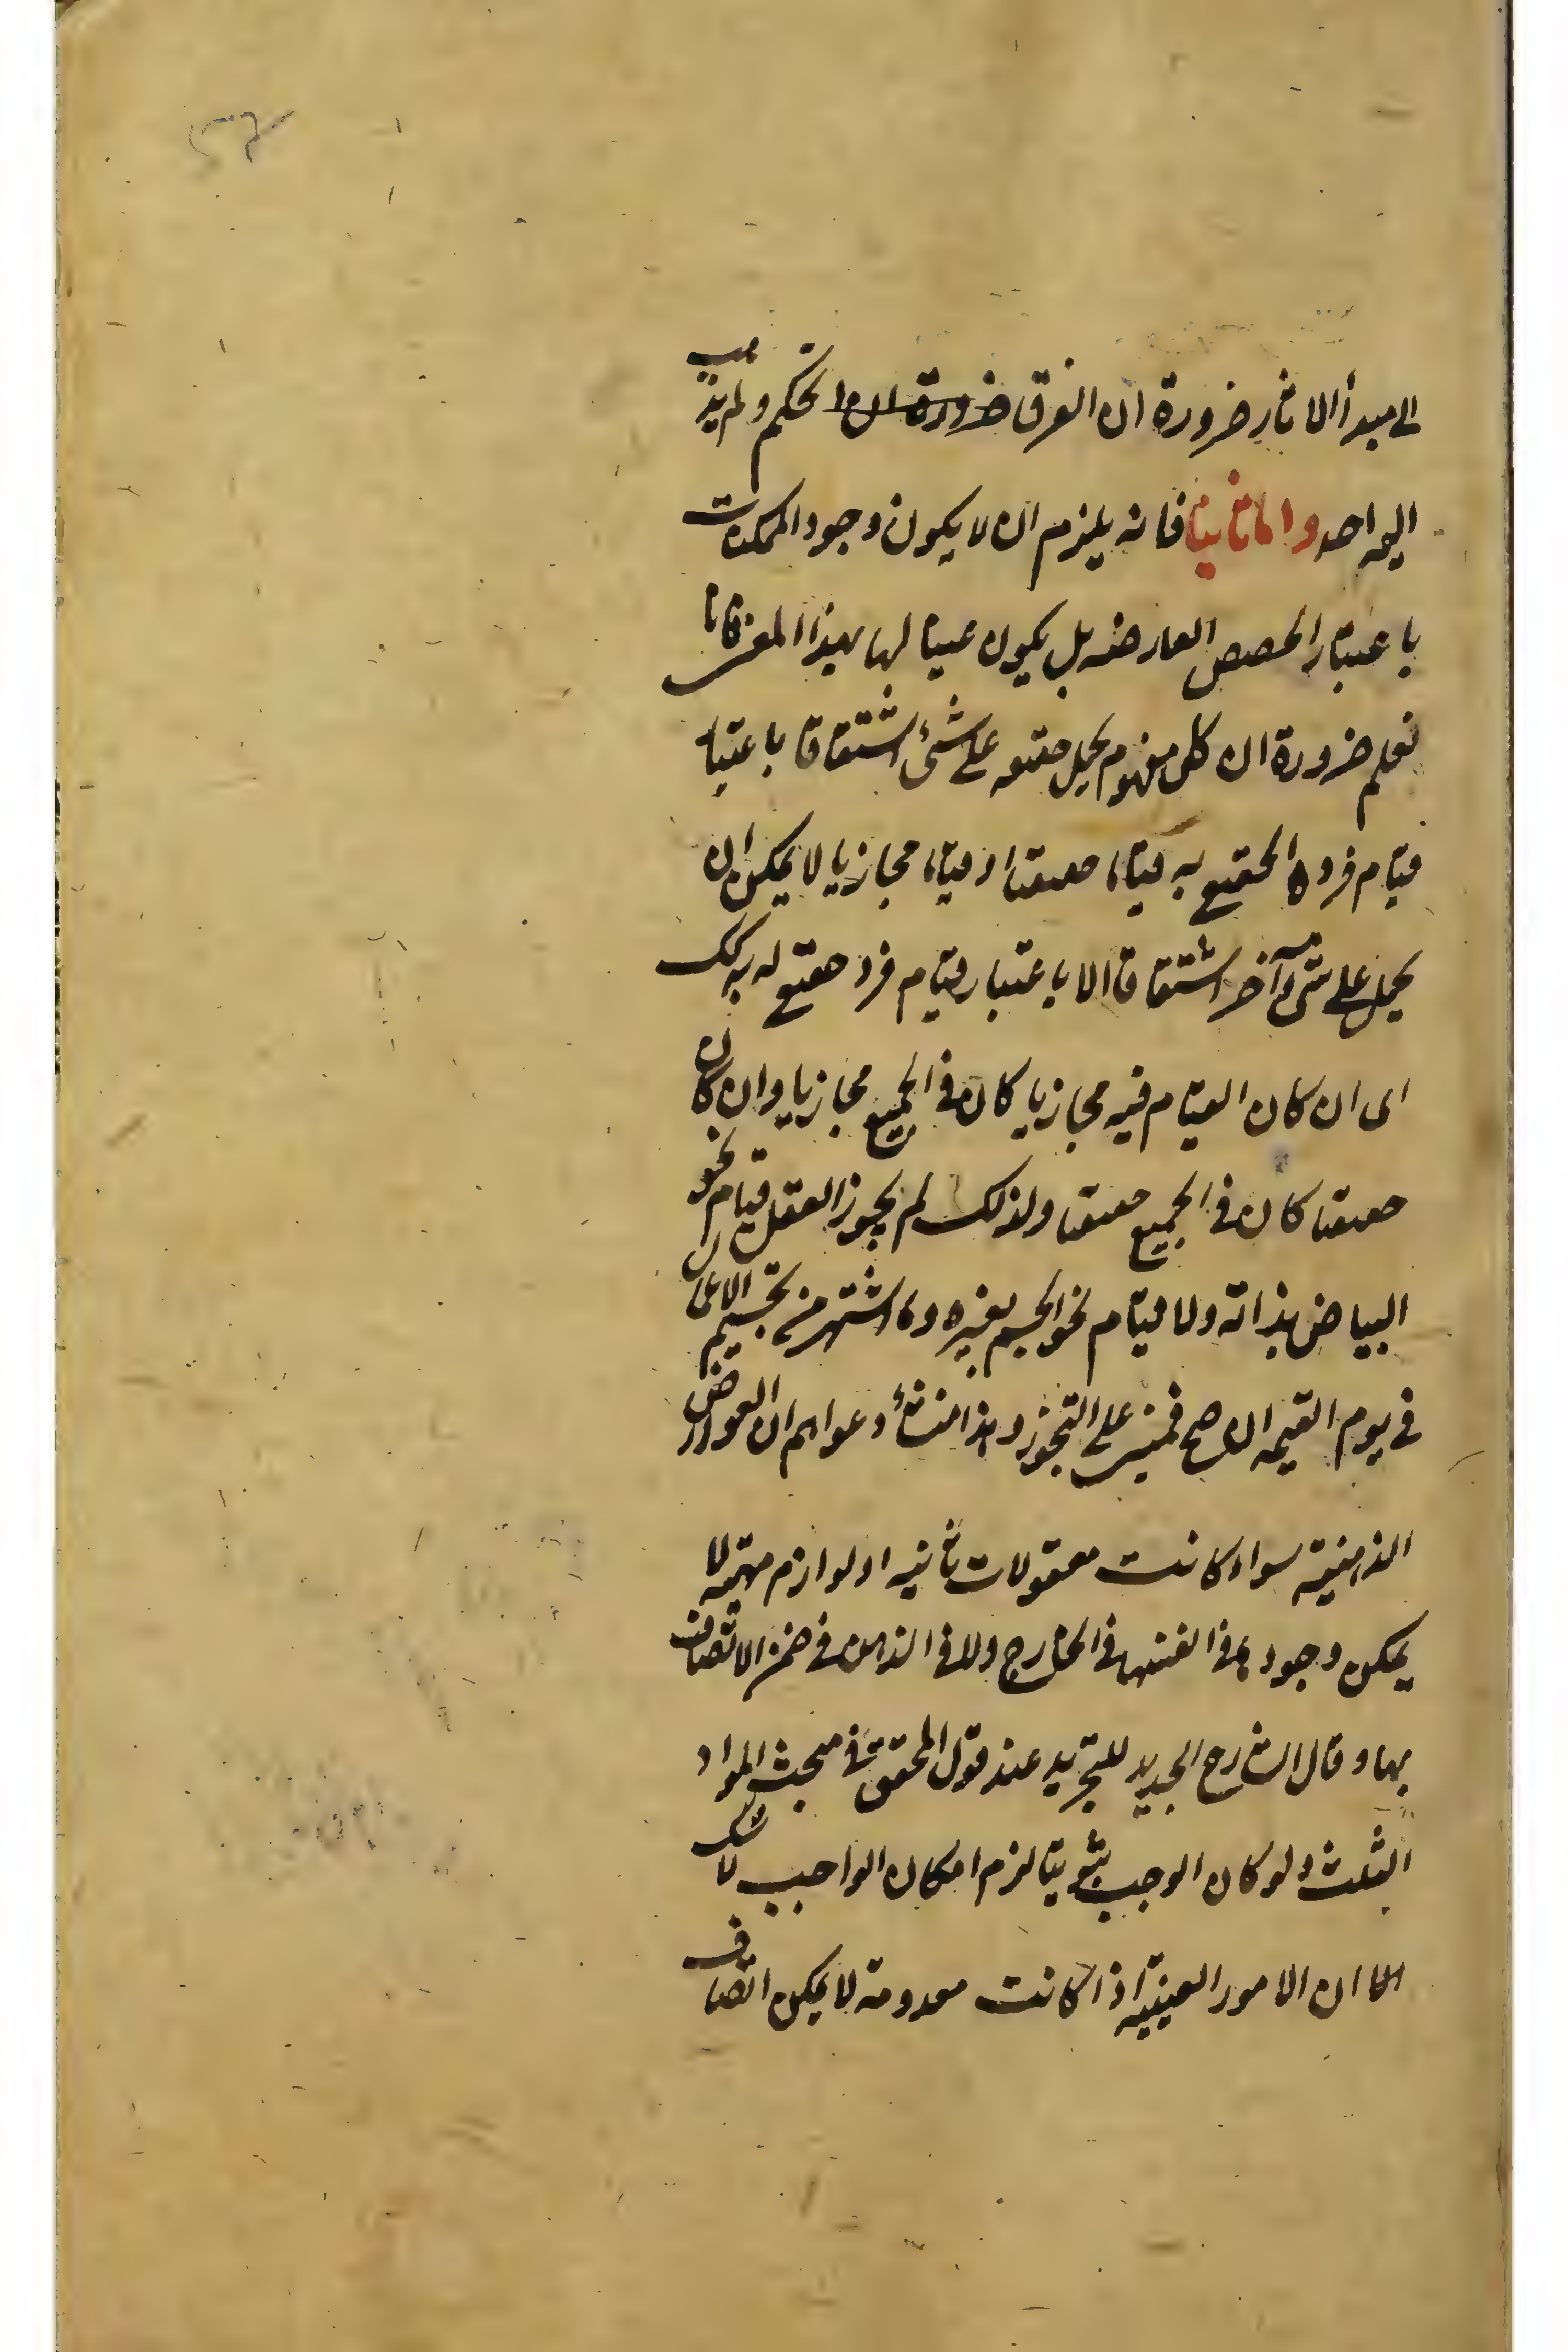 الى مبدأ الاثار ضرورة ان الفرق ضرورة ان ا تحكم ولم يذهب
اليه احد واما ثانيا فانه يلزم ان لا يكون وجود الممكنات
باعتبار الحصص العارضه بل يكون عينا لها بهذا المعنى فانا
نعلم ضرورة ان كل مفهوم يحمل حقيقه على شئ اشتقاقا باعتبار
قيام فرده الحقيقي به قياما حقيقيا او قياما مجازيا لا يمكن ان
يحمل على شئ آخر اشتقاقا الا باعتبار قيام فرد حقيقي له به كك
اى ان كان القيام فيه مجازيا كان فى الجميع مجازيا وان كان
حقيقيا كان فى الجميع حقيقيا ولذلك لم يجوز العقل قيام نحو
البياض بذاته ولا قيام نحو الجسم بغيره وما اشتهر من تجسيم الاعمال
فى يوم القيمه ان صح فمبنى على التجوز وهذا منشأ دعواهم ان العوارض
الذهنيه سواء كانت معقولات ثانيه او لوازم مهيته لا
يمكن وجودها فى انفسها فى الخارج ولا فى الذهن فى ضمن الاتصاف
بها وقال الشارح الجديد للتجريد عند قول المحقق فى مبحث المواد
الثلث ولو كان الوجوب ثبوتيا لزم امكان الواجب لا شك
الا ان الامور العينيه اذا كانت معدومة لا يمكن اتصاف